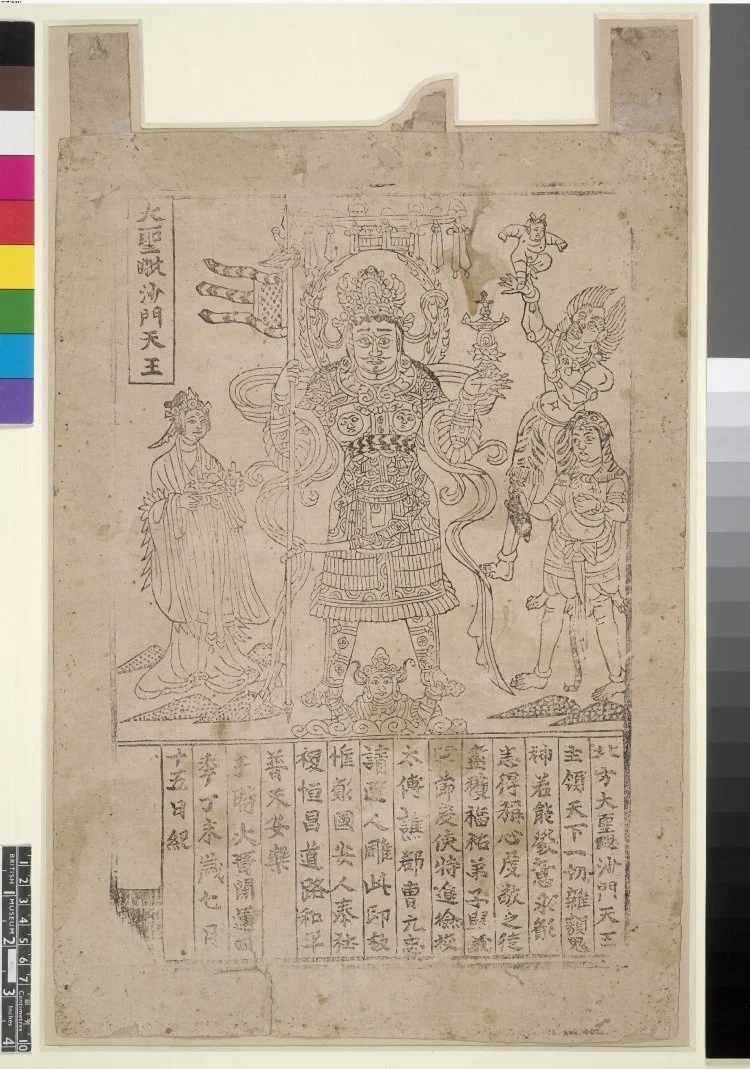 大聖毗沙門天王
北方大聖毗沙門天王
主領天下一切雜類鬼
神若能發意求願
悉得稱心虔敬之徒
盡獲福祐弟子歸義
軍節度使特進檢校
太傅譙郡曹元忠
請匠人雕此印板
惟願國安人泰社
稷恒昌道路和平
普天安樂
于時大晋開運四
年丁未歲七月
十五日紀
BRITISH MUSEUM
1 2 3 4 5 6 7 8 9 10
Centimetres
2 3 4
Inches